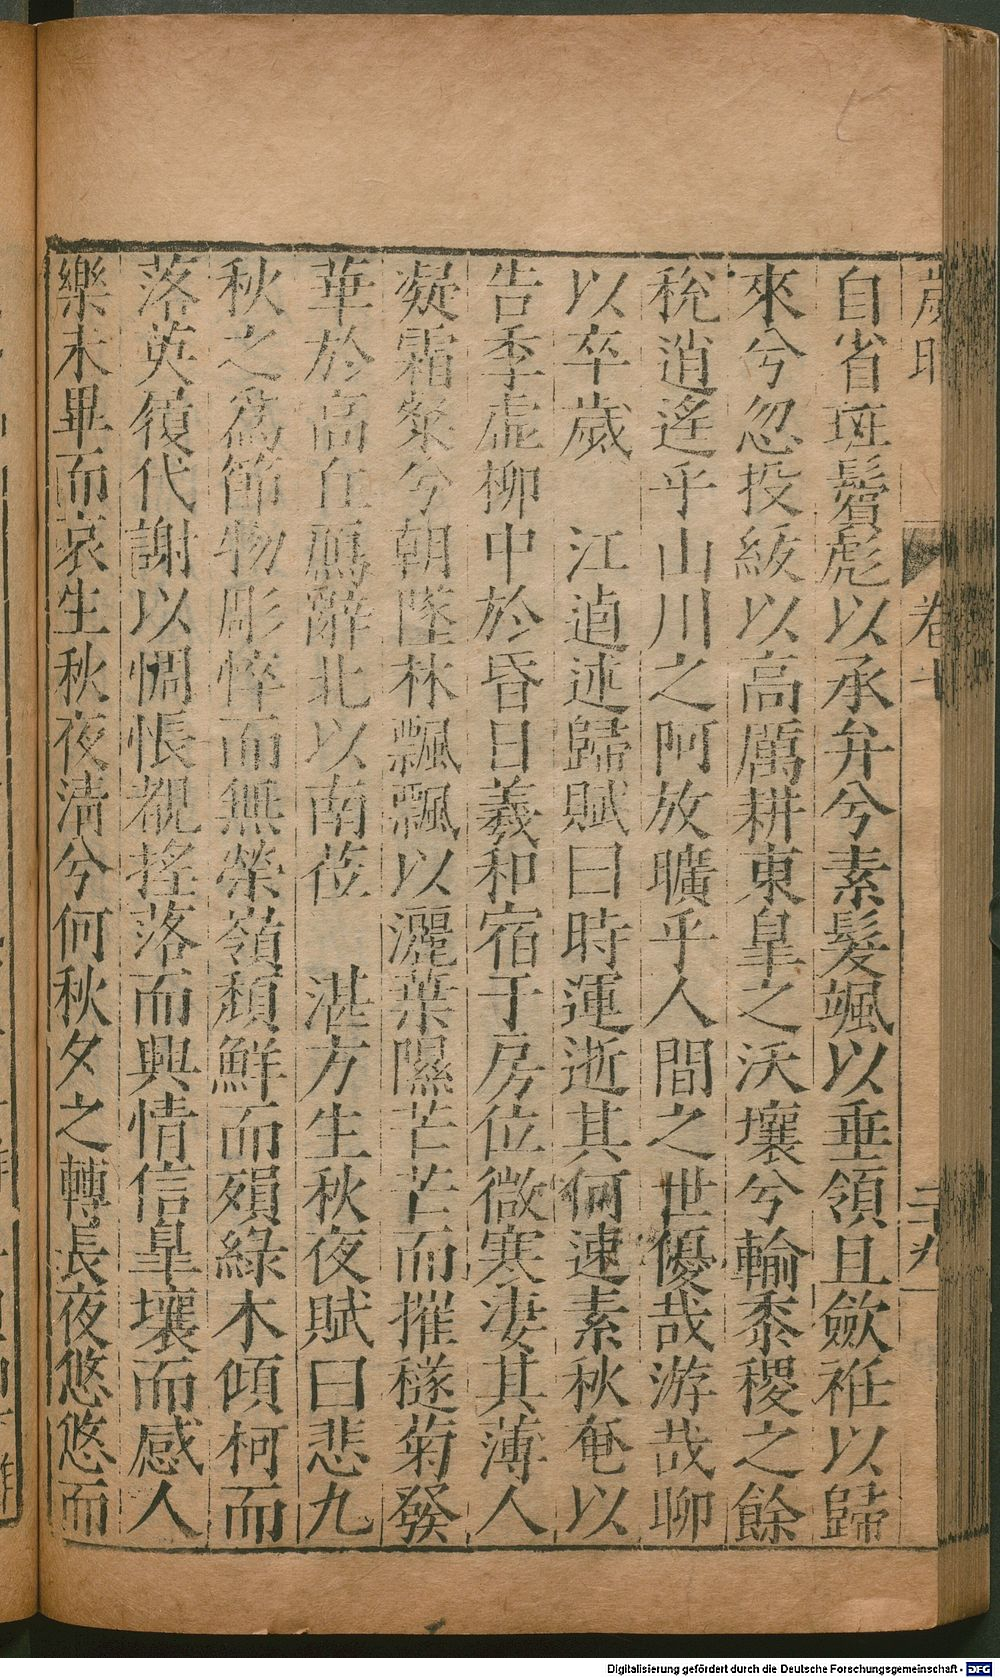 歲時
卷十
二十九
自省斑鬢彪以承弁兮素髮颯以垂領且歛衽以歸
來兮忽投紱以高厲耕東皐之沃壤兮輸黍稷之餘
稅逍遙乎山川之阿放曠乎人間之世優哉游哉聊
以卒歲 江逌述歸賦曰時運逝其何速素秋奄以
告季虛柳中於昏日羲和宿于房位微寒淒其薄人
凝霜粲兮朝墜林飄飄以灑葉隰芒芒而摧穟菊發
華於高丘鴈辭北以南莅 湛方生秋夜賦曰悲九
秋之爲節物彫悴而無榮嶺頹鮮而殞綠木傾柯而
落英履代謝以惆悵覩搖落而興情信皐壤而感人
樂未畢而哀生秋夜淸兮何秋夕之轉長夜悠悠而
Digitalisierung gefördert durch die Deutsche Forschungsgemeinschaft - DFG